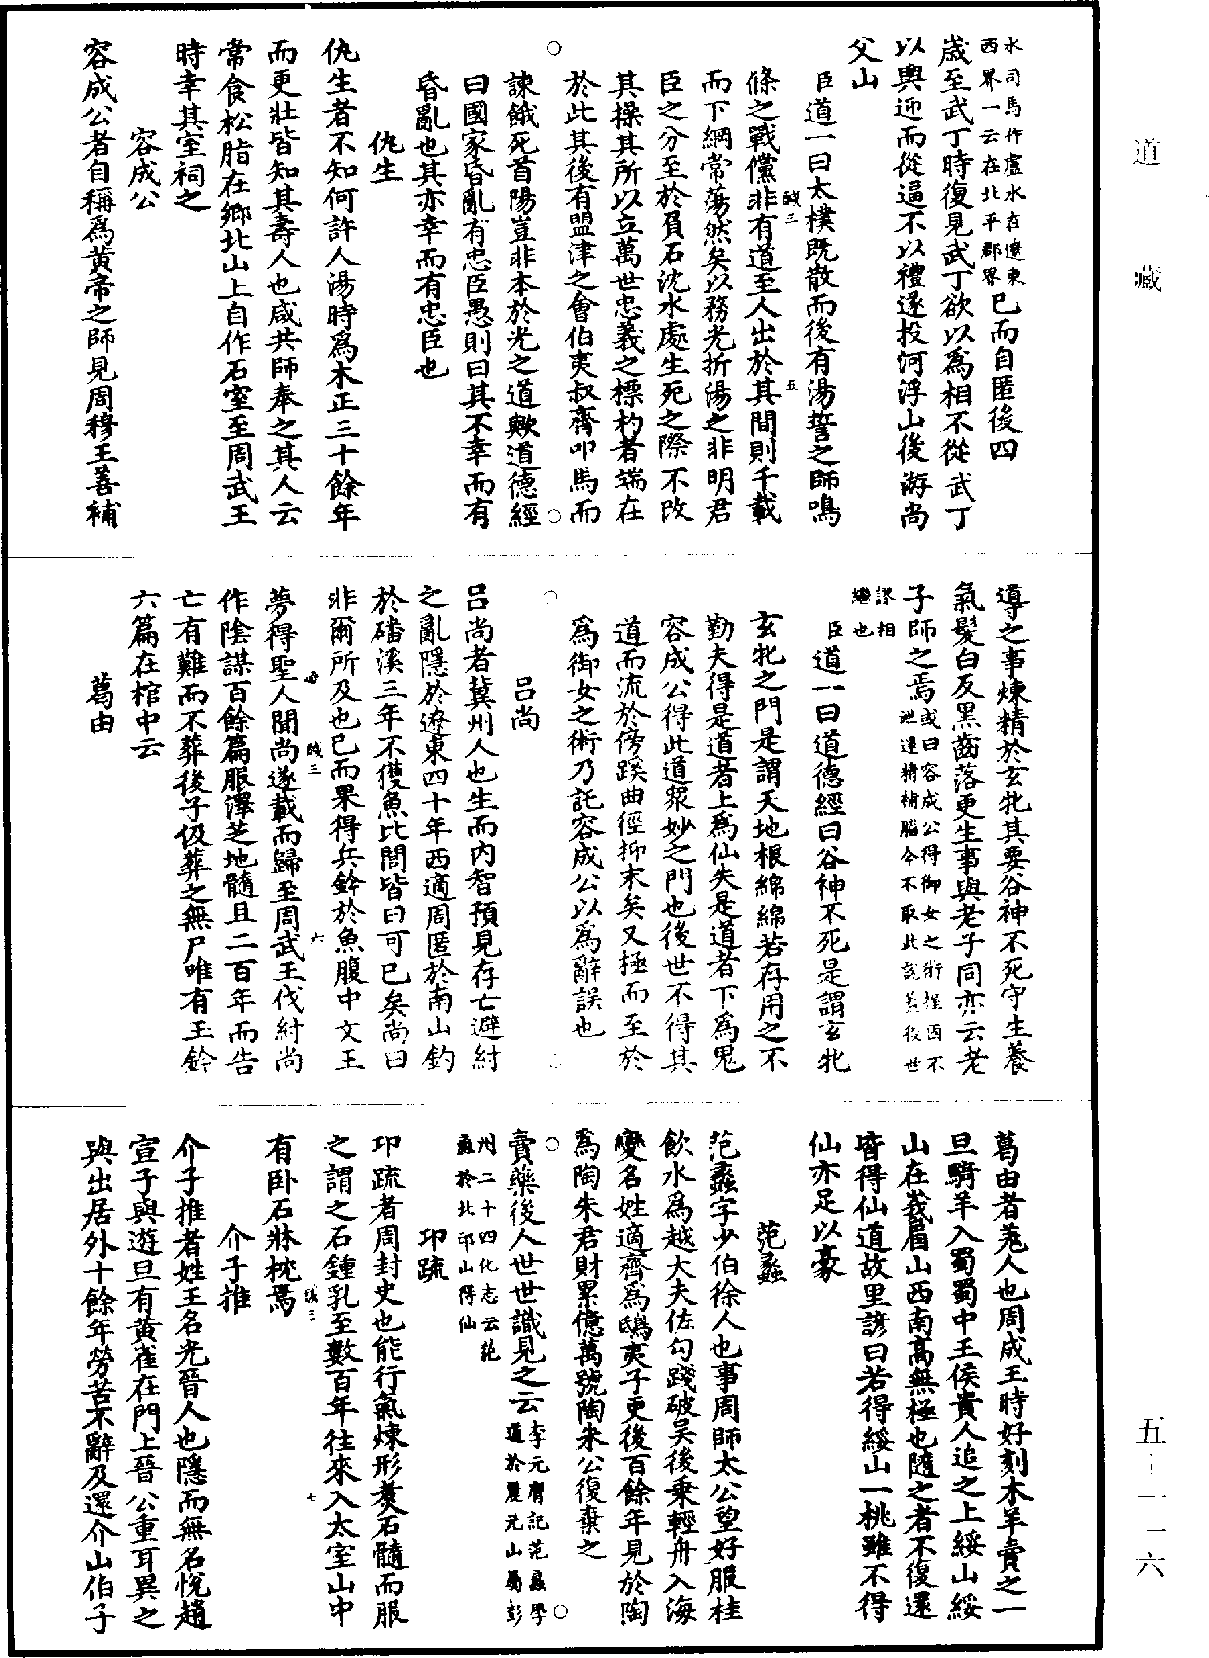 道藏
五—一一六
水司馬作盧水在遼東
西界一云在北平郡界已而自匿後四
歲至武丁時復見武丁欲以爲相不從武丁
以輿迎而從逼不以禮遂投河浮山後游尚
父山
臣道一曰太樸既散而後有湯誓之師鳴
條之戰儻非有道至人出於其間則千載
而下綱常蕩然矣以務光折湯之非明君
臣之分至於負石沈水處生死之際不改
其操其所以立萬世忠義之標杓者端在
於此其後有盟津之會伯夷叔齊叩馬而
諫餓死首陽豈非本於光之道歟道德經
曰國家昏亂有忠臣愚則曰其不幸而有
昏亂也其亦幸而有忠臣也
仇生
仇生者不知何許人湯時爲木正三十餘年
而更壯皆知其壽人也咸共師奉之其人云
常食松脂在鄉北山上自作石室至周武王
時幸其室祠之
容成公
容成公者自稱爲黃帝之師見周穆王善補
導之事煉精於玄牝其要谷神不死守生養
氣髮白反黑齒落更生事與老子同亦云老
子師之焉或曰容成公得御女之術握固不
泄還精補腦今不取此説蓋後世
謬相
繼也
臣道一曰道德經曰谷神不死是謂玄牝
玄牝之門是謂天地根綿綿若存用之不
勤夫得是道者上爲仙失是道者下爲鬼
容成公得此道眾妙之門也後世不得其
道而流於傍蹊曲徑抑末矣又極而至於
爲御女之術乃託容成公以爲辭誤也
呂尚
呂尚者冀州人也生而内智預見存亡避紂
之亂隱於遼東四十年西適周匿於南山釣
於磻溪三年不獲魚比閭皆曰可已矣尚曰
非爾所及也已而果得兵鈐於魚腹中文王
夢得聖人聞尚遂載而歸至周武王伐紂尚
作陰謀百餘篇服澤芝地髓且二百年而告
亡有難而不葬後子伋葬之無尸唯有玉鈐
六篇在棺中云
葛由
葛由者羗人也周成王時好刻木羊賣之一
旦騎羊入蜀蜀中王侯貴人追之上綏山綏
山在峩眉山西南高無極也隨之者不復還
皆得仙道故里諺曰若得綏山一桃雖不得
仙亦足以豪
范蠡
范蠡字少伯徐人也事周師太公望好服桂
飲水爲越大夫佐勾踐破吴後乘輕舟入海
變名姓適齊爲鴟夷子更後百餘年見於陶
爲陶朱君財累億萬號陶朱公復棄之
賣藥後人世世識見之云李元膺記范蠡學
道於麗元山屬彭
州二十四化志云范
蠡於北邙山得仙
卭疏
卭疏者周封史也能行氣煉形煑石髓而服
之謂之石鍾乳至數百年往來入太室山中
有卧石牀枕焉
介子推
介子推者姓王名光晉人也隱而無名悅趙
宣子與遊旦有黃雀在門上晉公重耳異之
與出居外十餘年勞苦不辭及還介山伯子